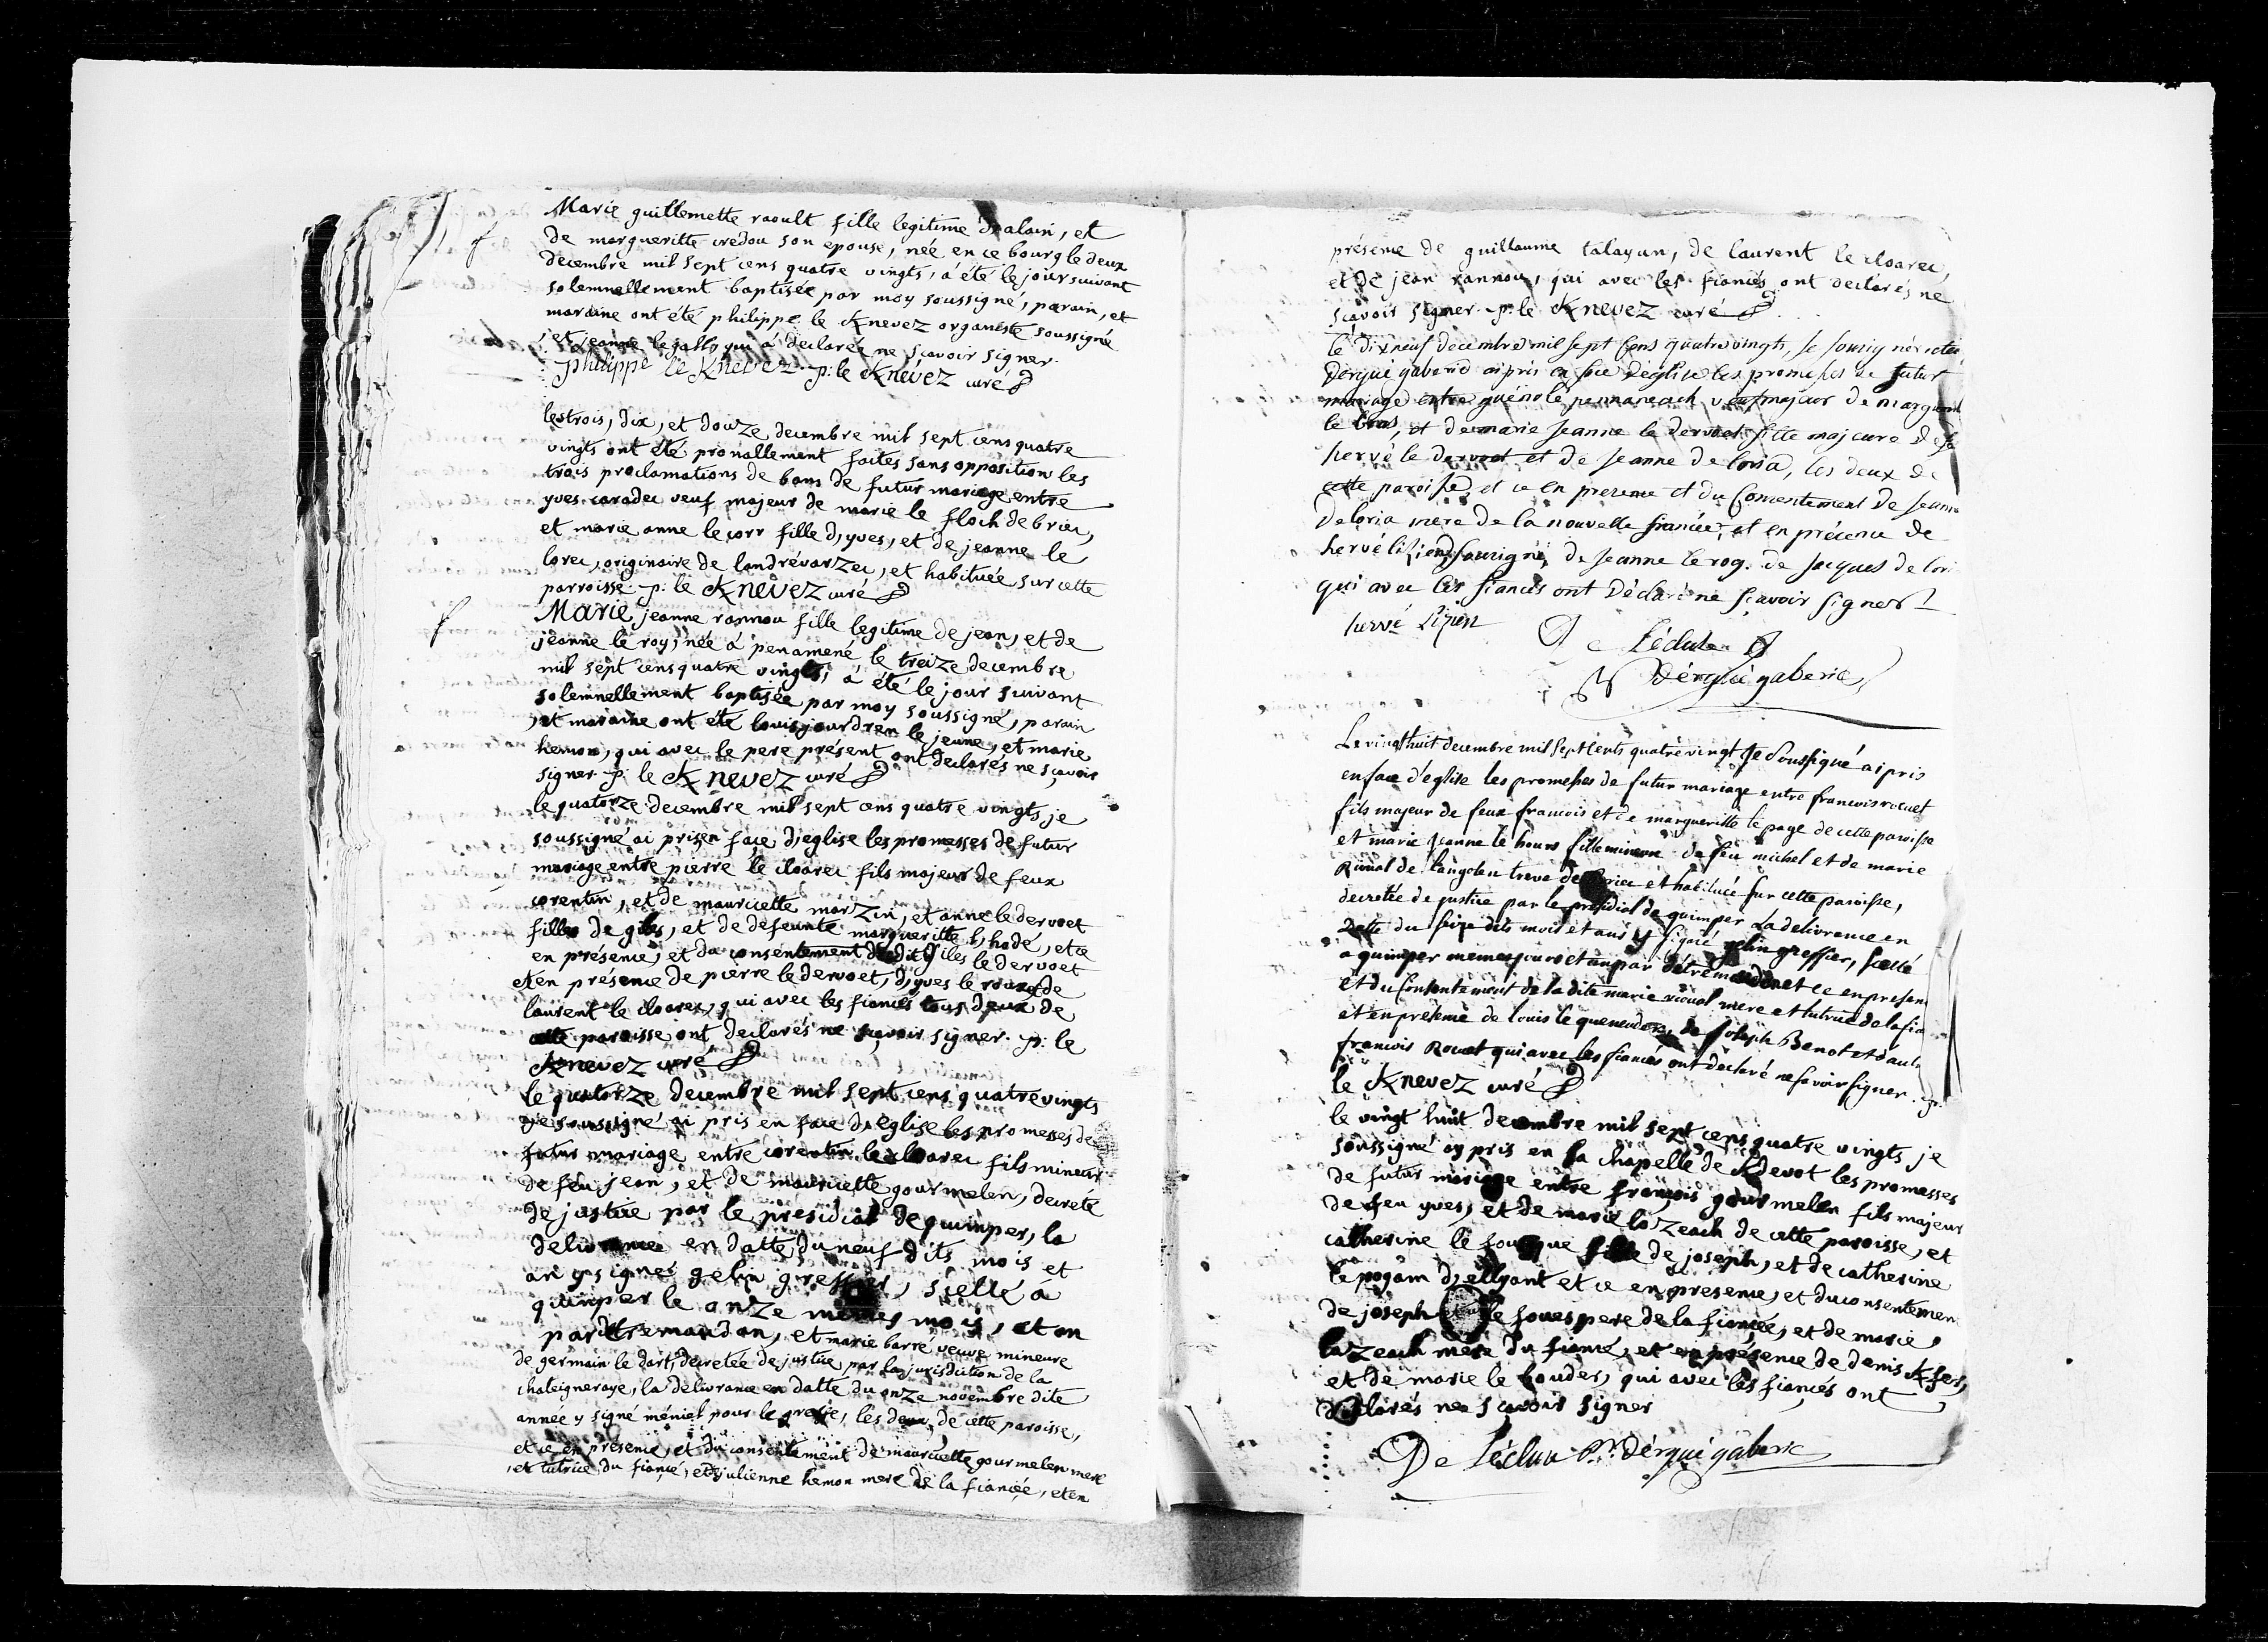 Marie guillemette raoult fille legitime d'alain, et
de margueritte credou son epouse, née en ce bourg le deux
decembre mil sept cens quatre vingts, a été le jour suivant
solemnellement baptisée par moy soussigné, parain, et
maraine ont été philippe le Knevez organiste soussigné
, et jeanne le gall, qui a declarée ne scavoir signer.
Philippe le Knevez. p: le Knevez curé
f
les trois, dix, et douze decembre mil sept cens quatre
vingts ont été pronallement faites sans opposition les
trois proclamations de bans de futur mariage entre
yves caradec veuf majeur de marie le floch de briec,
et marie anne le corr fille d'yves, et de jeanne le
lorec, originaire de landrévarzec, et habituée sur cette
parroisse. p: le Knevez curé
Marie jeanne rannou fille legitime de jean, et de
f
jeanne le roy, née á penamené le treize decembre
mil sept cens quatre vingts, a été le jour suivant
solemnellement baptisée par moy soussigné, parain
, et maraine ont été louis jourdren le jeune, et marie
hemon, qui avec le pere présent ont declarés ne sçavoir
signer. p: le Knevez curé
le quatorze decembre mil sept cens quatre vingts je
soussigné ai pris en face d'eglise les promesses de futur
mariage entre pierre le cloarec fils majeur de feux
corentin, et de mauricette marzin, et anne le dervoet
fille de giles, et de defeunte margueritte l'hade, et ce
en présence, et du consentement dudit giles le dervoet
et en présence de pierre le dervoet, d'yves le roux, de
laurent le cloarec, qui avec les fiancés tous deux de
cette paroisse ont declarés ne sçavoir signer. p: le
Knevez curé
le quatorze decembre mil sept cens quatre vingts
je soussigné ai pris en face d'eglise les promesses de
futur mariage entre corentin le cloarec fils mineur
de feu jean, et de mauricette gourmelen, decreté
de justice par le presidial de quimper, la
delivrance en datte du neuf dits mois et
an y signé gelin greffier, scellé á
quimper le onze mêmes mois, et an
par detremaudan, et marie barré veuve mineure
de germain le dart, decretée de justice par la jurisdiction de la
chateigneraye, la delivrance en datte du onze novembre dite
année y signé méniel pour le greffe, les deux de cette paroisse,
et ce en présence, et du consentement de mauricette gourmelen mere
, et tutrice du fiancé, et de julienne hemon mere de la fiancée, et en
présence de guillaume talayan, de laurent le cloarec,
et de jean rannou, qui avec les fiancés ont declarés ne
scavoir signer. p: le Knevez curé
le dix neuf decembre mil sept cens quatrevingts, je sousigné
Dergué gaberic ai pris en face d'eglise les promesses de futur
mariage entre guénolé pennaneach veuf majeur de
le bras, et de marie jeanne le dervoet fille majeure de
hervé le dervoet et de jeanne de loria, les deux de
cette paroisse, et ce en presence et du consentement de jeanne
de loria mere de la nouvelle fiancée, et en présence de
hervé lizien sousigné, de jeanne le rog. de jacques de
qui avec les fiancés ont déclaré ne sçavoir signer
hervé lizien
De Lécluse
Dérgué gaberic
Le vingt huit decembre mil sept cents quatre vingt je soussigné ai pris
en face d'eglise les promesses de futur mariage entre francois rouat
fils majeur de feux francois et de margueritte le page de cette paroisse
et marie jeanne le hours fille mineure de feu michel et de marie
rioual de langolen treve de briec et habituée sur cette paroisse,
decretée de justice par le présidial de quimper la delivrance en
datte du seize dits mois et an y signé gelin greffier, scellé
a quimper memes jours et an par détremaudan et ce en presen
et du consentement de la dite marie rioual mere et tutrice de la fia
et en présence de louis le queneudec, de joseph Benot et d'aut
francois rouat qui avec les fiancés ont déclaré ne savoir signer. p:
le Knevez curé
le vingt huit decembre mil sept cens quatre vingts je
soussigné ay pris en la chapelle de Kdevot les promesses
de futur mariage entre françois gourmelen fils majeur
de feu yves, et de marie lozeach de cette paroisse, et
catherine le fille de joseph, et de catherine
le pogam d'ellyant et ce en presence, et du consentemen
de joseph le pere de la fiancée, et de marie
lozeach mere du fiancé, et en présence de denis
et de marie le gouder, qui avec les fiancés ont
declarés ne scavoir signer
De Lécluse Dérgué gaberic